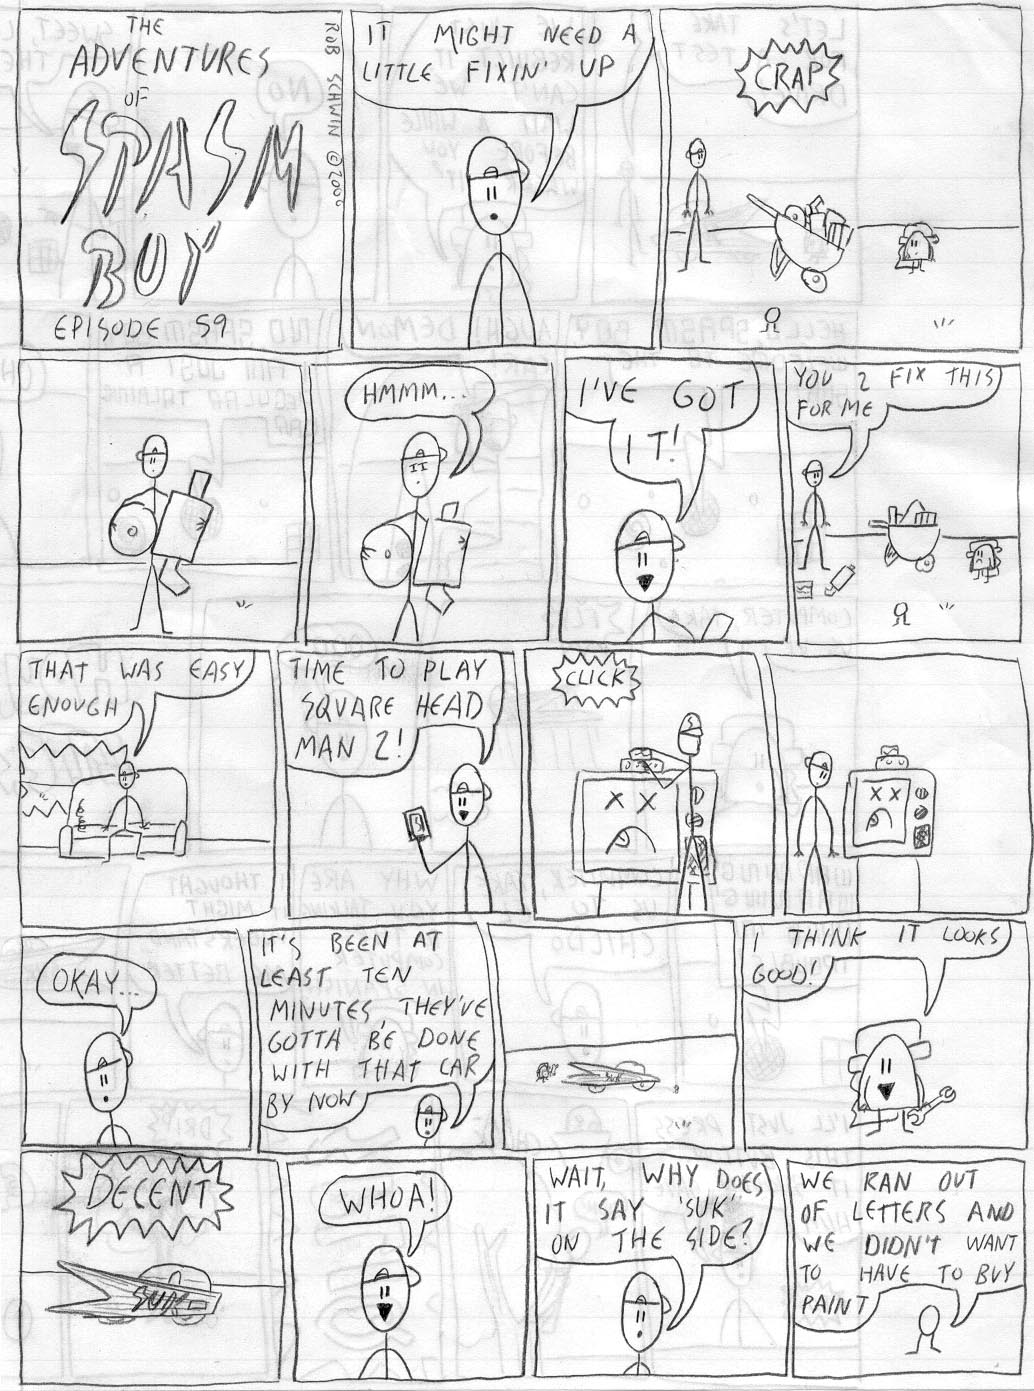 THE
ADVENTURES
OF
SPASM
BOY
EPISODE 59
ROB SCHWIN © 2006
IT MIGHT NEED A
LITTLE FIXIN' UP
CRAP
HMMM...
I'VE GOT
IT!
YOU 2 FIX THIS
FOR ME
THAT WAS EASY
ENOUGH
TIME TO PLAY
SQUARE HEAD
MAN 2!
CLICK
OKAY...
IT'S BEEN AT
LEAST TEN
MINUTES, THEY'VE
GOTTA BE DONE
WITH THAT CAR
BY NOW
I THINK IT LOOKS
GOOD!
DECENT
SUK
WHOA!
WAIT, WHY DOES
IT SAY "SUK"
ON THE SIDE?
WE RAN OUT
OF LETTERS AND
WE DIDN'T WANT
TO HAVE TO BUY
PAINT